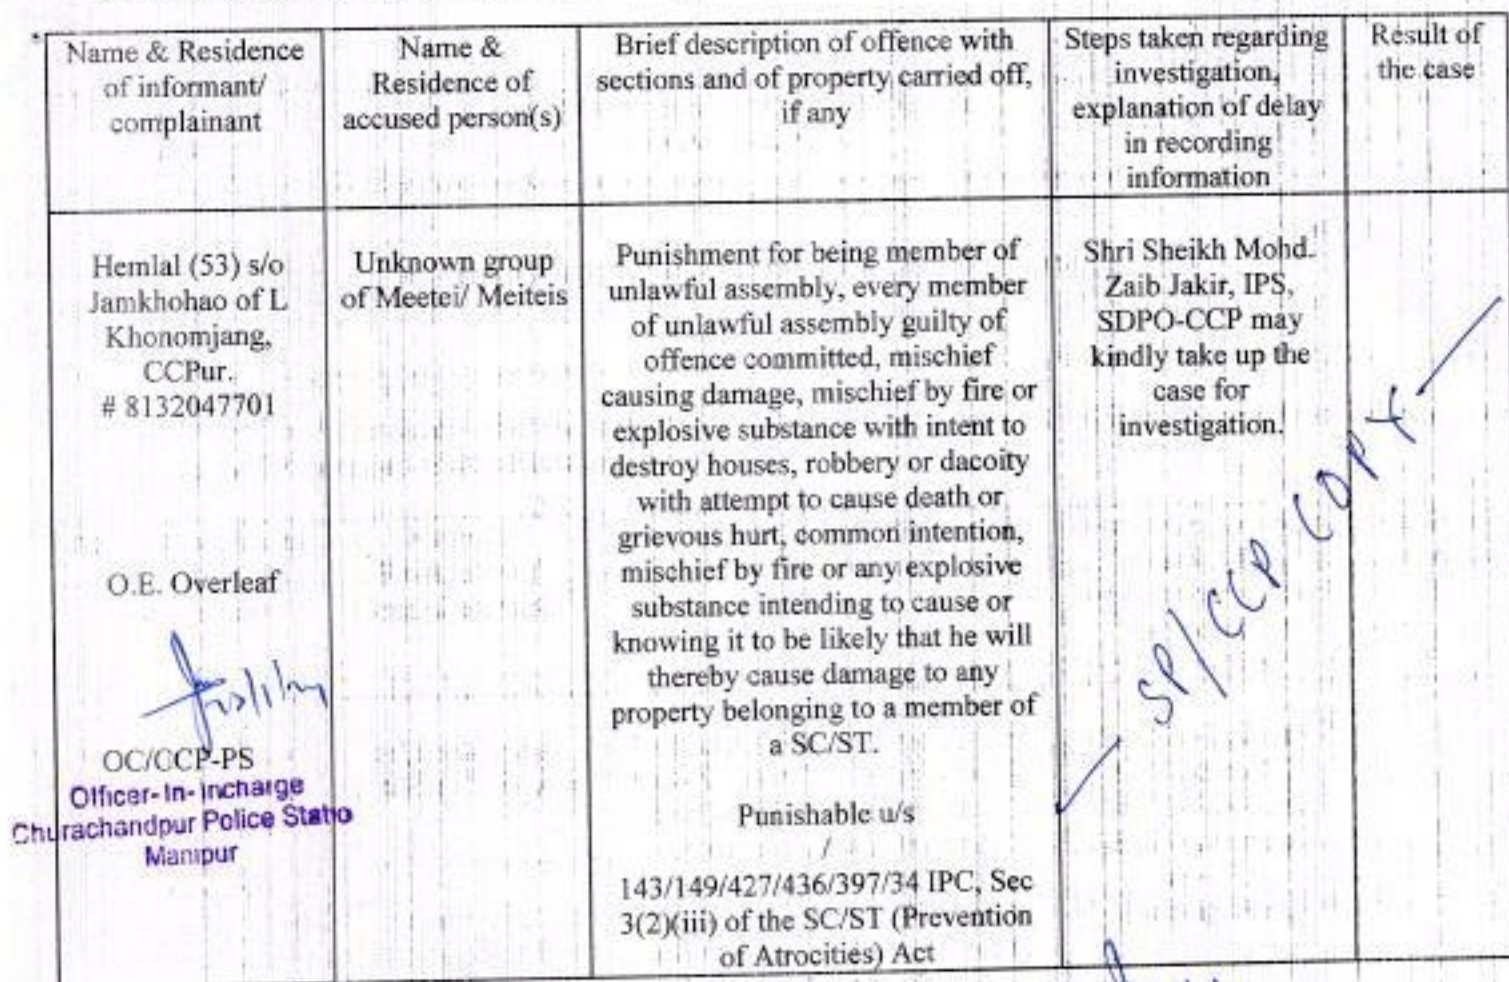 Name & Residence
of informant/
complainant
Name &
Residence of
accused person(s)
Brief description of offence with
sections and of property carried off,
if any
Steps taken regarding
investigation,
explanation of delay
in recording
information
Result of
the case
Hemlal (53) s/o
Jamkhohao of L
Khonomjang,
CCPur.
# 8132047701
O.E. Overleaf
OC/CCP-PS
Officer-In-Incharge
Churachandpur Police Statio
Manipur
Unknown group
of Meetei/ Meiteis
Punishment for being member of
unlawful assembly, every member
of unlawful assembly guilty of
offence committed, mischief
causing damage, mischief by fire or
explosive substance with intent to
destroy houses, robbery or dacoity
with attempt to cause death or
grievous hurt, common intention,
mischief by fire or any explosive
substance intending to cause or
knowing it to be likely that he will
thereby cause damage to any
property belonging to a member of
a SC/ST.
Punishable u/s
/
143/149/427/436/397/34 IPC, Sec
3(2)(iii) of the SC/ST (Prevention
of Atrocities) Act
Shri Sheikh Mohd.
Zaib Jakir, IPS,
SDPO-CCP may
kindly take up the
case for
investigation.
SP/CCP COPY